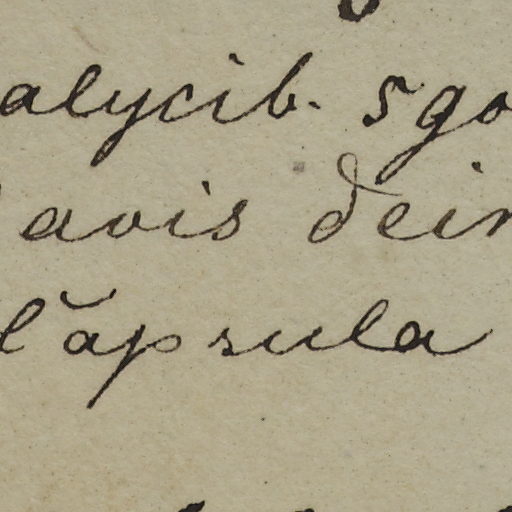 alycib. 5go
avis dein
căpsula